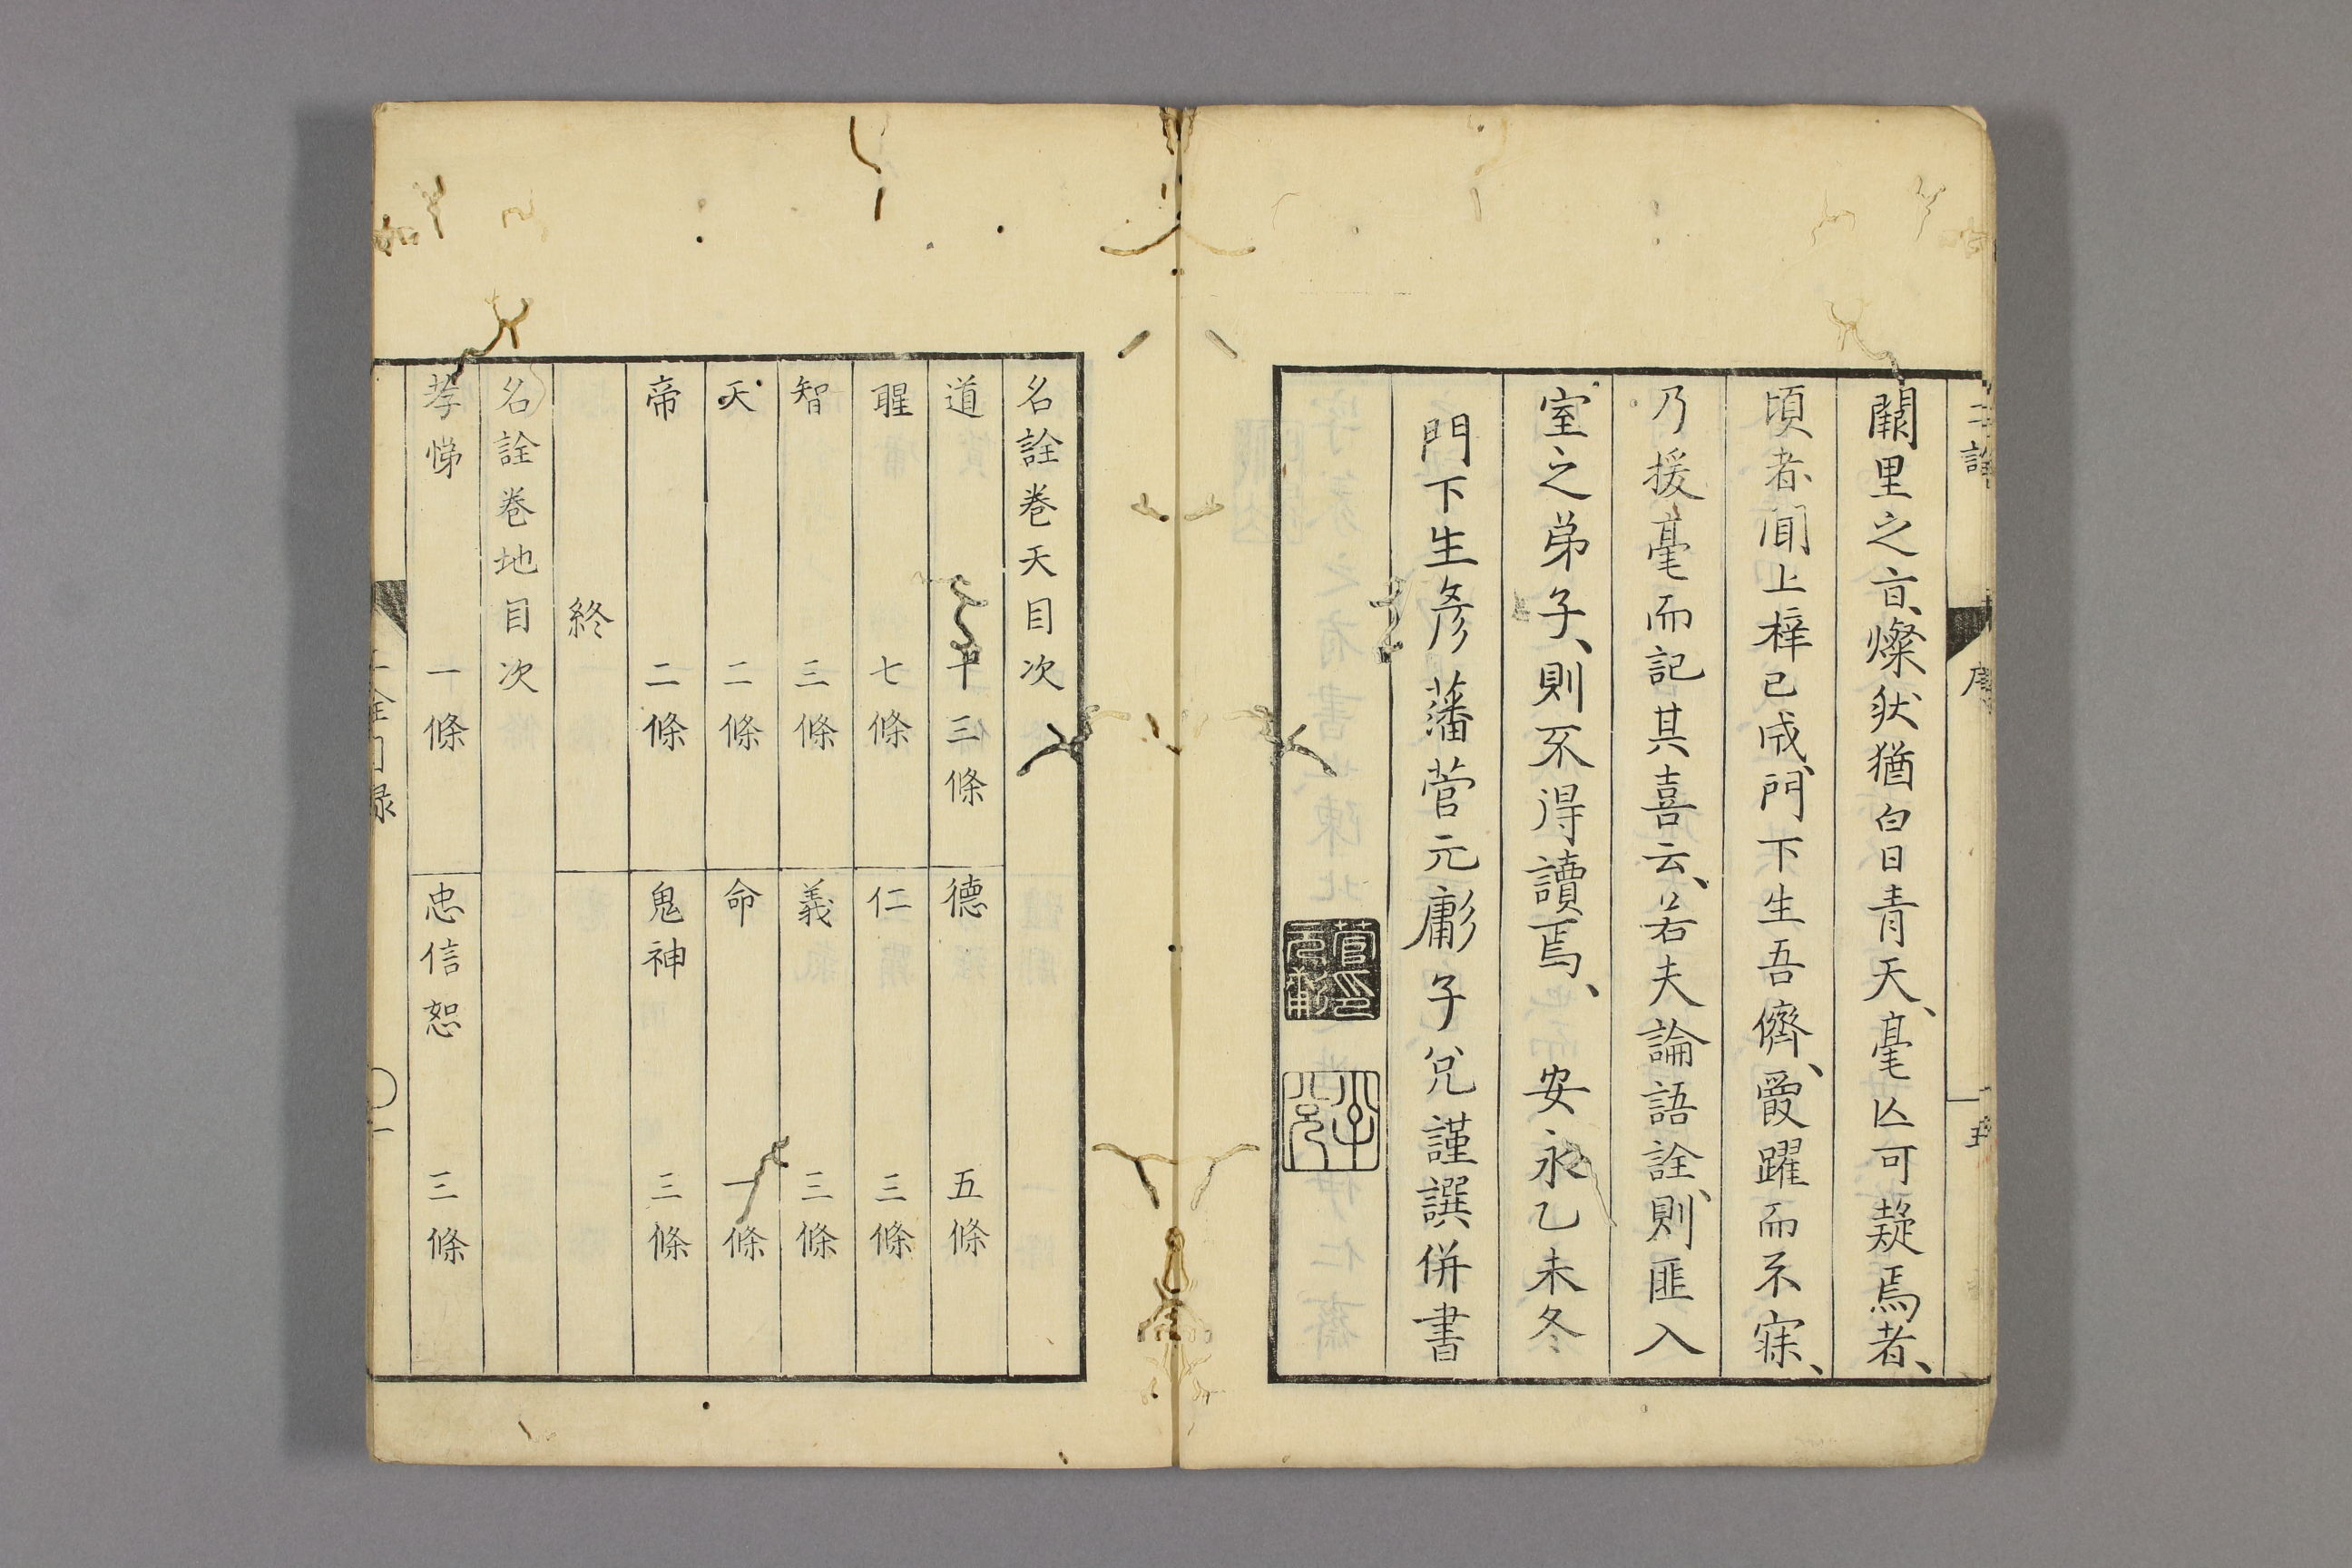 闕里之亯、燦狀猶白日青天、毫亾可疑焉者、
頃者、聞上梓已成、門下生吾儕、爰躍而不寐、
乃援毫而記其喜云、若夫論語詮、則匪入
室之弟子、則不得讀焉、 安永乙未冬
門下生彥藩菅元彲子兌謹譔併書
名詮卷天目次
道 十三條 德 五條
聖 七條 仁 三條
智 三條 義 三條
天 二條 命 一條
帝 二條 鬼神 三條
終
名詮卷地目次
孝悌 一條 忠信恕 三條